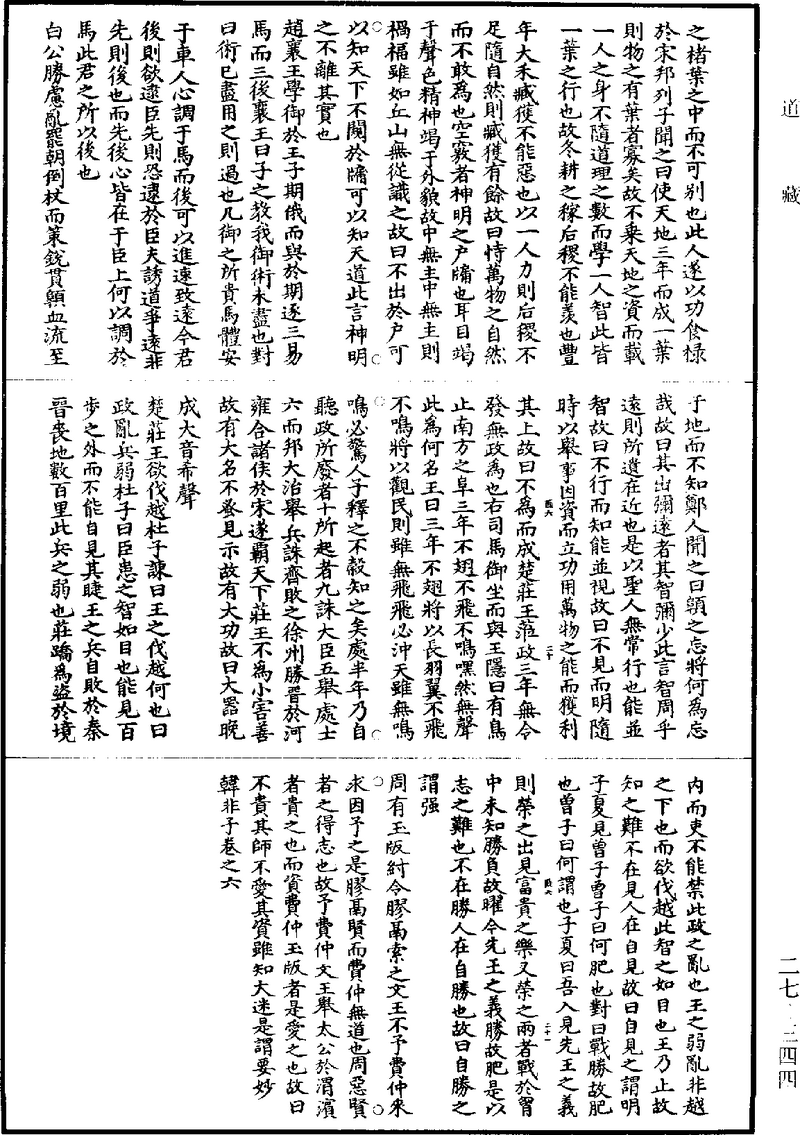 道藏
之楮葉之中而不可別也此人遂以功食祿
於宋邦列子聞之曰使天地三年而成一葉
則物之有葉者寡矣故不乘天地之資而載
一人之身不隨道理之數而學一人智此皆
一葉之行也故冬耕之稼后稷不能羡也豐
年大禾臧獲不能惡也以一人力則后稷不
足隨自然則臧獲有餘故曰恃萬物之自然
而不敢為也空竅者神明之戶牖也耳目竭
于聲色精神竭于外貌故中無主中無主則
禍福雖如丘山無從識之故曰不出於戶可
以知天下不闚於牖可以知天道此言神明
之不離其實也
趙襄王學御於王子期俄而與於期逐三易
馬而三後襄王曰子之教我御術未盡也對
曰術已盡用之則過也凡御之所貴馬體安
于車人心調于馬而後可以進速致遠今君
後則欲逮臣先則恐逮於臣夫誘道爭遠非
先則後也而先後心皆在于臣上何以調於
馬此君之所以後也
白公勝慮亂罷朝倒杖而策銳貫顊血流至
于地而不知鄭人聞之曰顊之忘將何為忘
哉故曰其出彌遠者其智彌少此言智周乎
遠則所遺在近也是以聖人無常行也能並
智故曰不行而知能並視故曰不見而明隨
時以舉事因資而立功用萬物之能而獲利
其上故曰不為而成楚莊王蒞政三年無令
發無政為也右司馬御坐而與王隱曰有鳥
止南方之阜三年不翅不飛不鳴嘿然無聲
此為何名王曰三年不翅將以長羽翼不飛
不鳴將以觀民則雖無飛飛必沖天雖無鳴
鳴必驚人子釋之不穀知之矣處半年乃自
聽政所廢者十所起者九誅大臣五舉處士
六而邦大治舉兵誅齊敗之徐州勝晉於河
雍合諸侯於宋遂霸天下莊王不為小害善
故有大名不蚤見示故有大功故曰大器晚
成大音希聲
楚莊王欲伐越杜子諫曰王之伐越何也曰
政亂兵弱杜子曰臣患之智如目也能見百
步之外而不能自見其睫王之兵自敗於秦
晉喪地數百里此兵之弱也莊蹻為盜於境
內而吏不能禁此政之亂也王之弱亂非越
之下也而欲伐越此智之如目也王乃止故
知之難不在見人在自見故曰自見之謂明
子夏見曾子曾子曰何肥也對曰戰勝故肥
也曾子曰何謂也子夏曰吾入見先王之義
則榮之出見富貴之樂又榮之兩者戰於胷
中未知勝負故臞今先王之義勝故肥是以
志之難也不在勝人在自勝也故曰自勝之
謂强
周有玉版紂令膠鬲索之文王不予費仲來
求因予之是膠鬲賢而費仲無道也周惡賢
者之得志也故予費仲文王舉太公於渭濱
者貴之也而資費仲玉版者是愛之也故曰
不貴其師不愛其資雖知大迷是謂要妙
韓非子卷之六